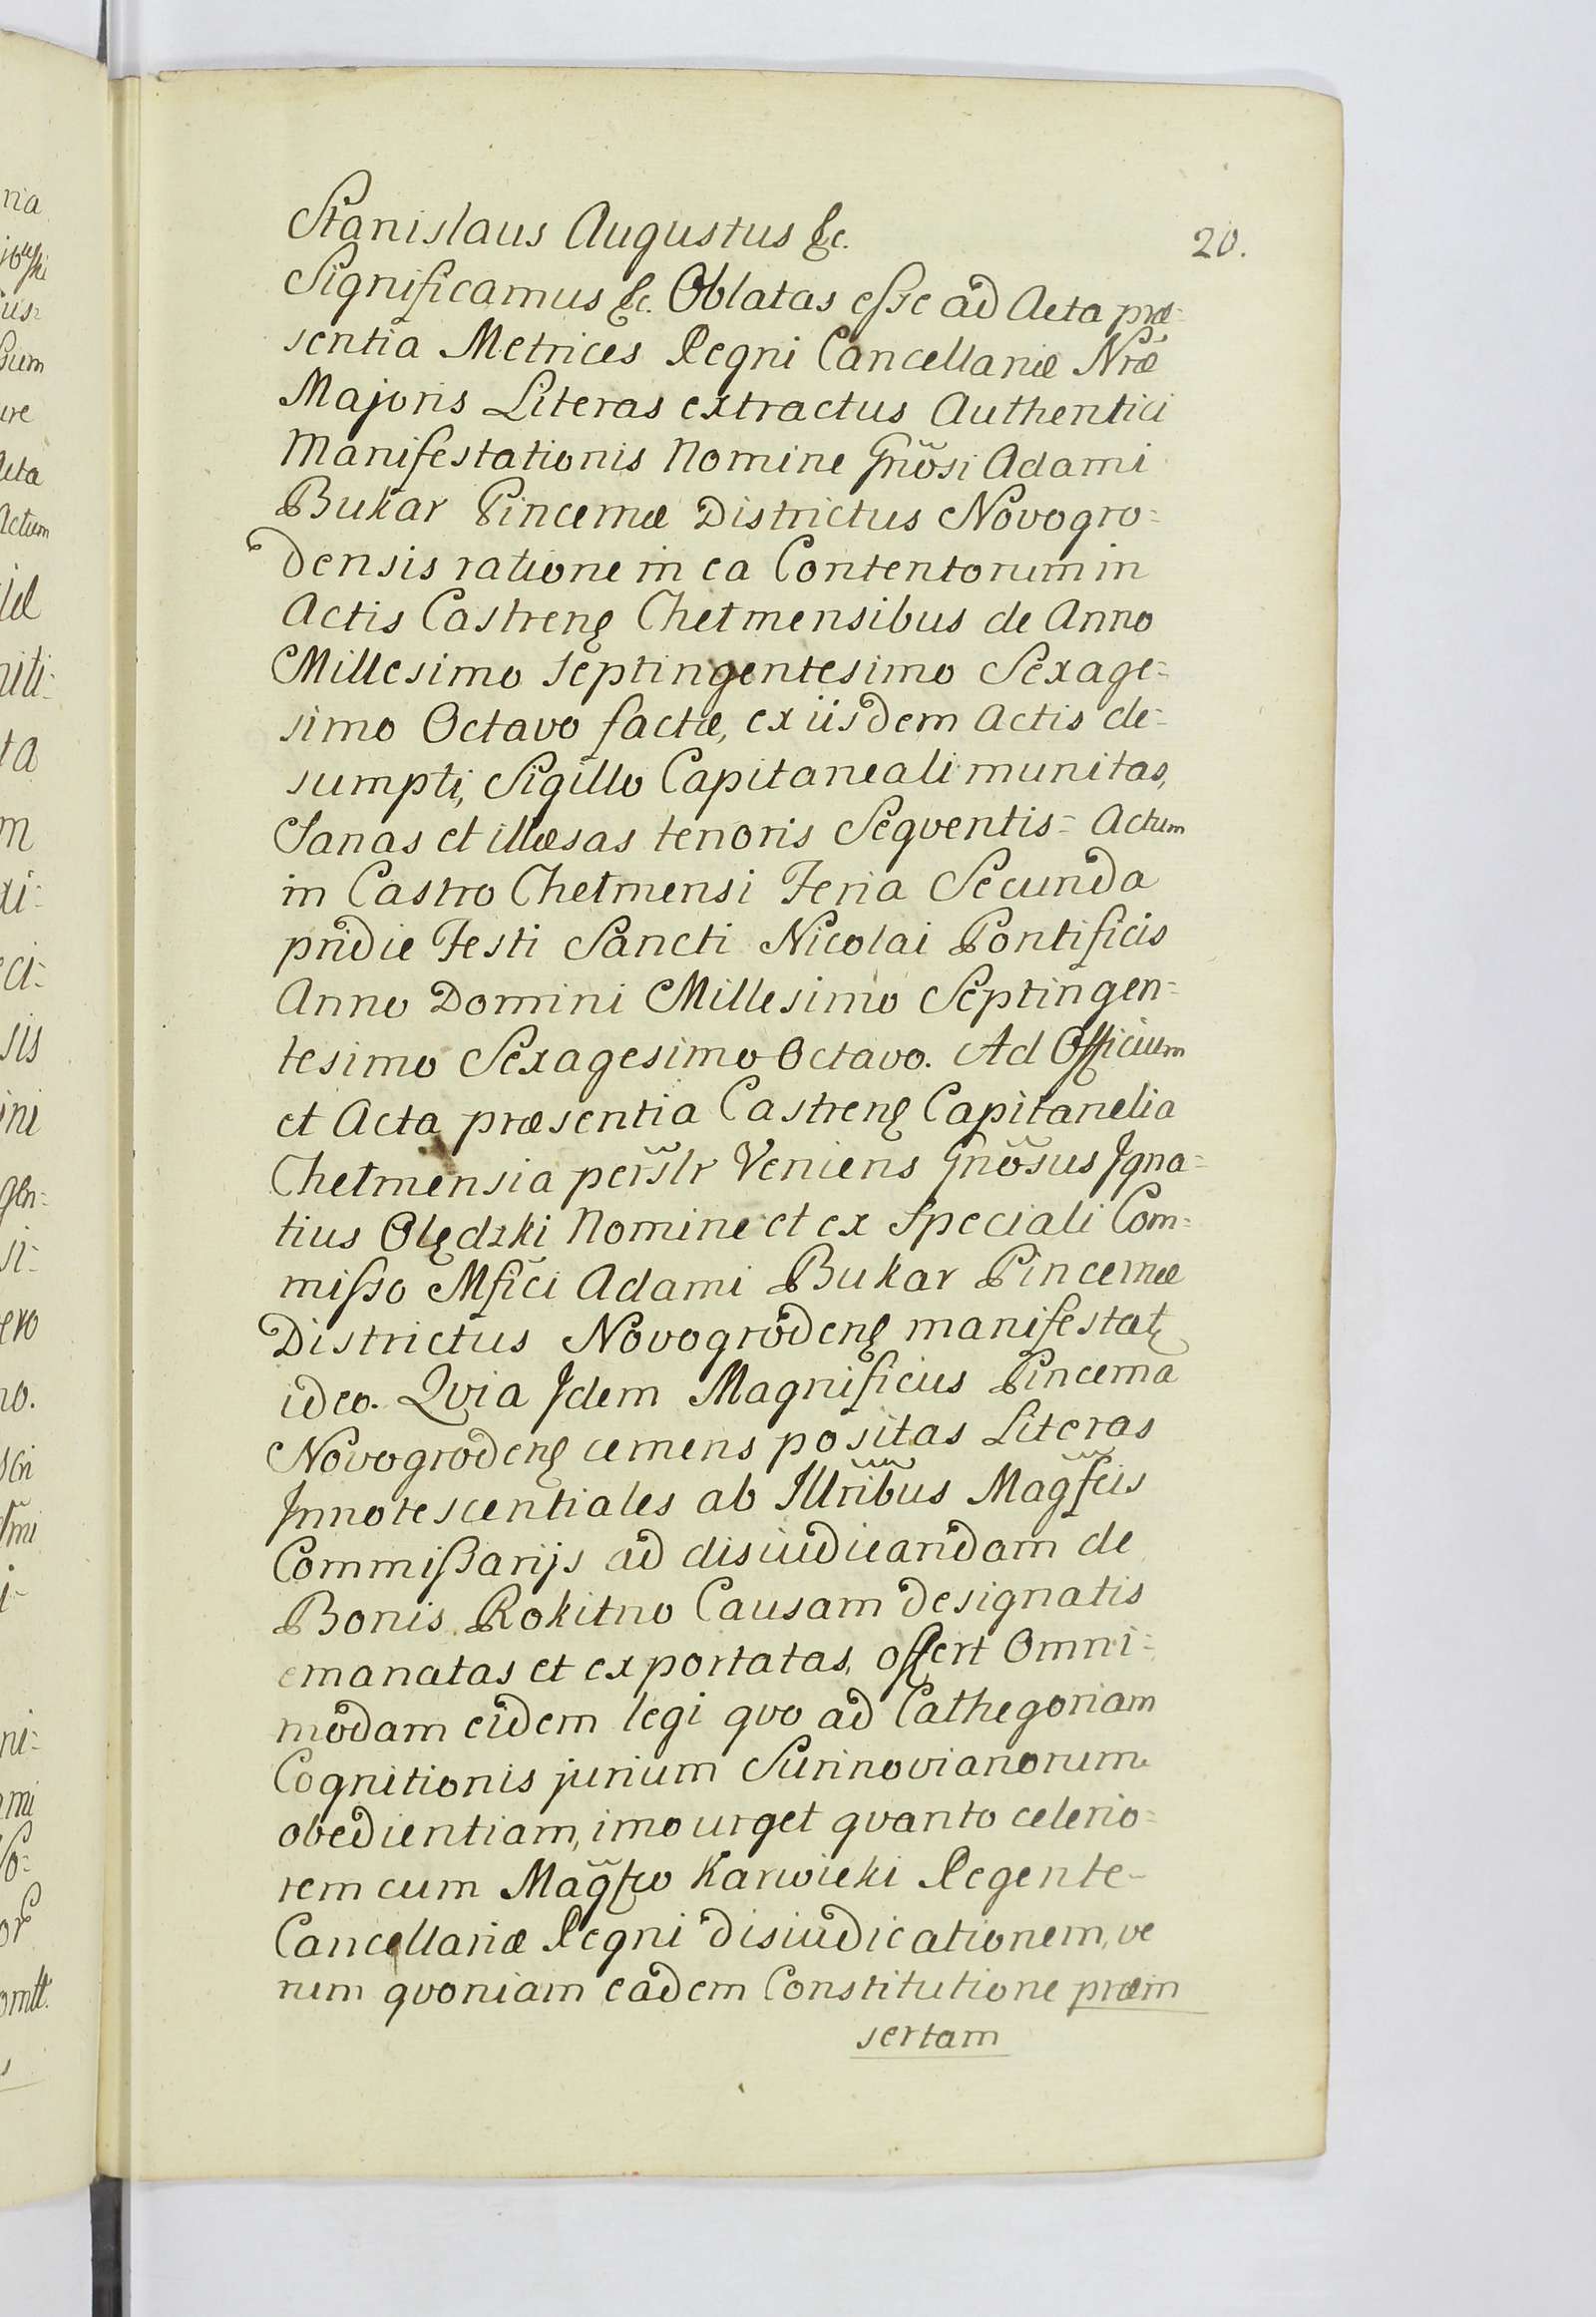 20.
Stanislaus Augustus &c.
Significamus &c. Oblatas esse ad Acta præ=
sentia Metrices Regni Cancellariæ Nræ
Majoris Literas extractus Authentici
Manifestationis Nomine Gnõsi Adami
Bukar Pincernæ Districtus Novogro=
densis ratione in ea Contentorum in
Actis Castrenę Chełmensibus de Anno
Millesimo septingentesimo Sexage=
simo Octavo factæ, ex iisdem Actis de=
sumpti, Sigillo Capitaneali munitas,
Sanas et illæsas tenoris Seqventis= Actum
in Castro Chełmensi Feria Secunda
pridie Festi Sancti Nicolai Pontificis
Anno Domini Millesimo Septingen=
tesimo Sexagesimo Octavo. Ad Officium
et Acta præsentia Castrenę Capitanelia
Chełmensia pers̃lr Veniens Gnõsus Igna=
tius Olędzki Nomine et ex Speciali Com=
misso Mfici Adami Bukar Pincernæ
Districtus Novogrodenę manifestatę
ideo. Qvia Idem Magnificius Pincerna
Novogrodenę cernens positas Literas
Innotescentiales ab Illrĩbus Mag̃fcis
Commissarijs ad disiudicandam de
Bonis Rokitno Causam designatis
emanatas et exportatas, offert Omni=
modam eidem legi qvo ad Cathegoriam
Cognitionis jurium Surinovianorum
obedientiam, imo urget qvanto celerio=
rem cum Mag̃fco Karwicki Regente
Cancellariæ Regni disiudicationem, ve
rum qvoniam eadem Constitutione præin
sertam